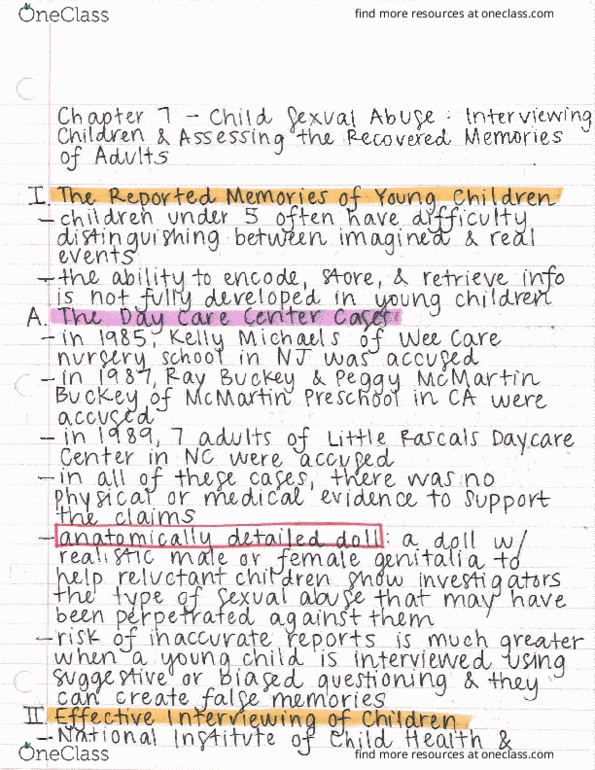 OneClass
find more resources at oneclass.com
Chapter 7 - Child Sexual Abuse : Interviewing
Children & Assessing the Recovered Memories
of Adults
I. The Reported Memories of Young Children
- children under 5 often have difficulty
distinguishing between imagined & real
events
- the ability to encode, store, & retrieve info
is not fully developed in young children
A. The Day Care Center Cases
- in 1985, Kelly Michaels of Wee Care
nursery school in NJ was accused
- in 1987, Ray Buckey & Peggy McMartin
Buckey of McMartin Preschool in CA were
accused
- in 1989, 7 adults of Little Rascals Daycare
Center in NC were accused
- in all of these cases, there was no
physical or medical evidence to support
the claims
- anatomically detailed doll: a doll w/
realistic male or female genitalia to
help reluctant children show investigators
the type of sexual abuse that may have
been perpetrated against them
- risk of inaccurate reports is much greater
when a young child is interviewed using
suggestive or biased questioning & they
can create false memories
II Effective Interviewing of Children
- National Institute of Child Health &
OneClass
find more resources at oneclass.com